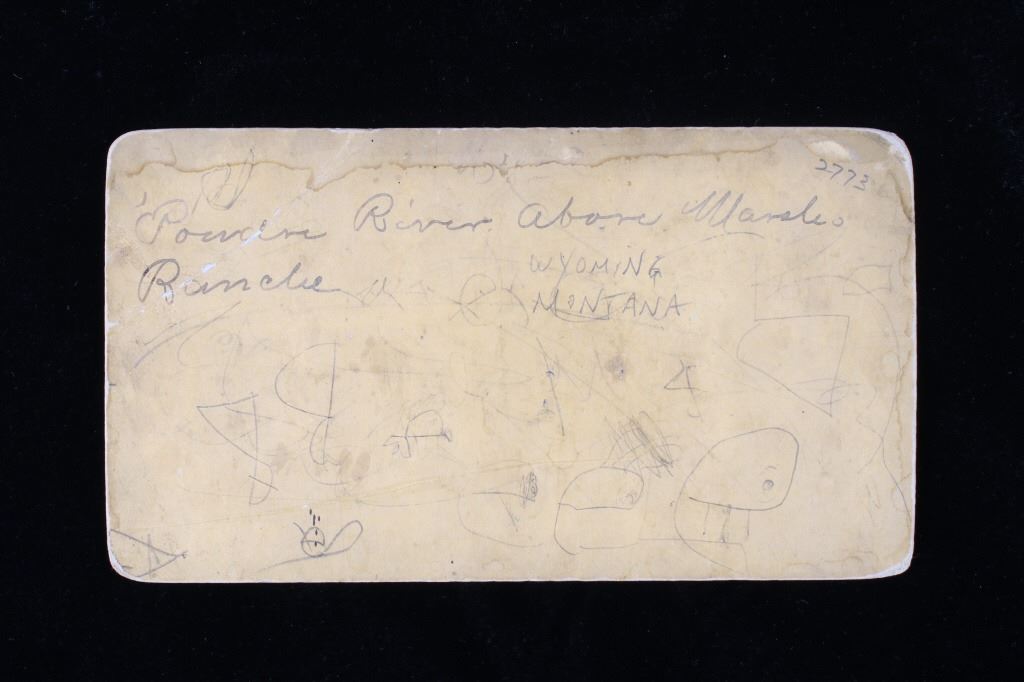 2773
Powdre River Above Marsh
Ranche
WYOMING
MONTANA